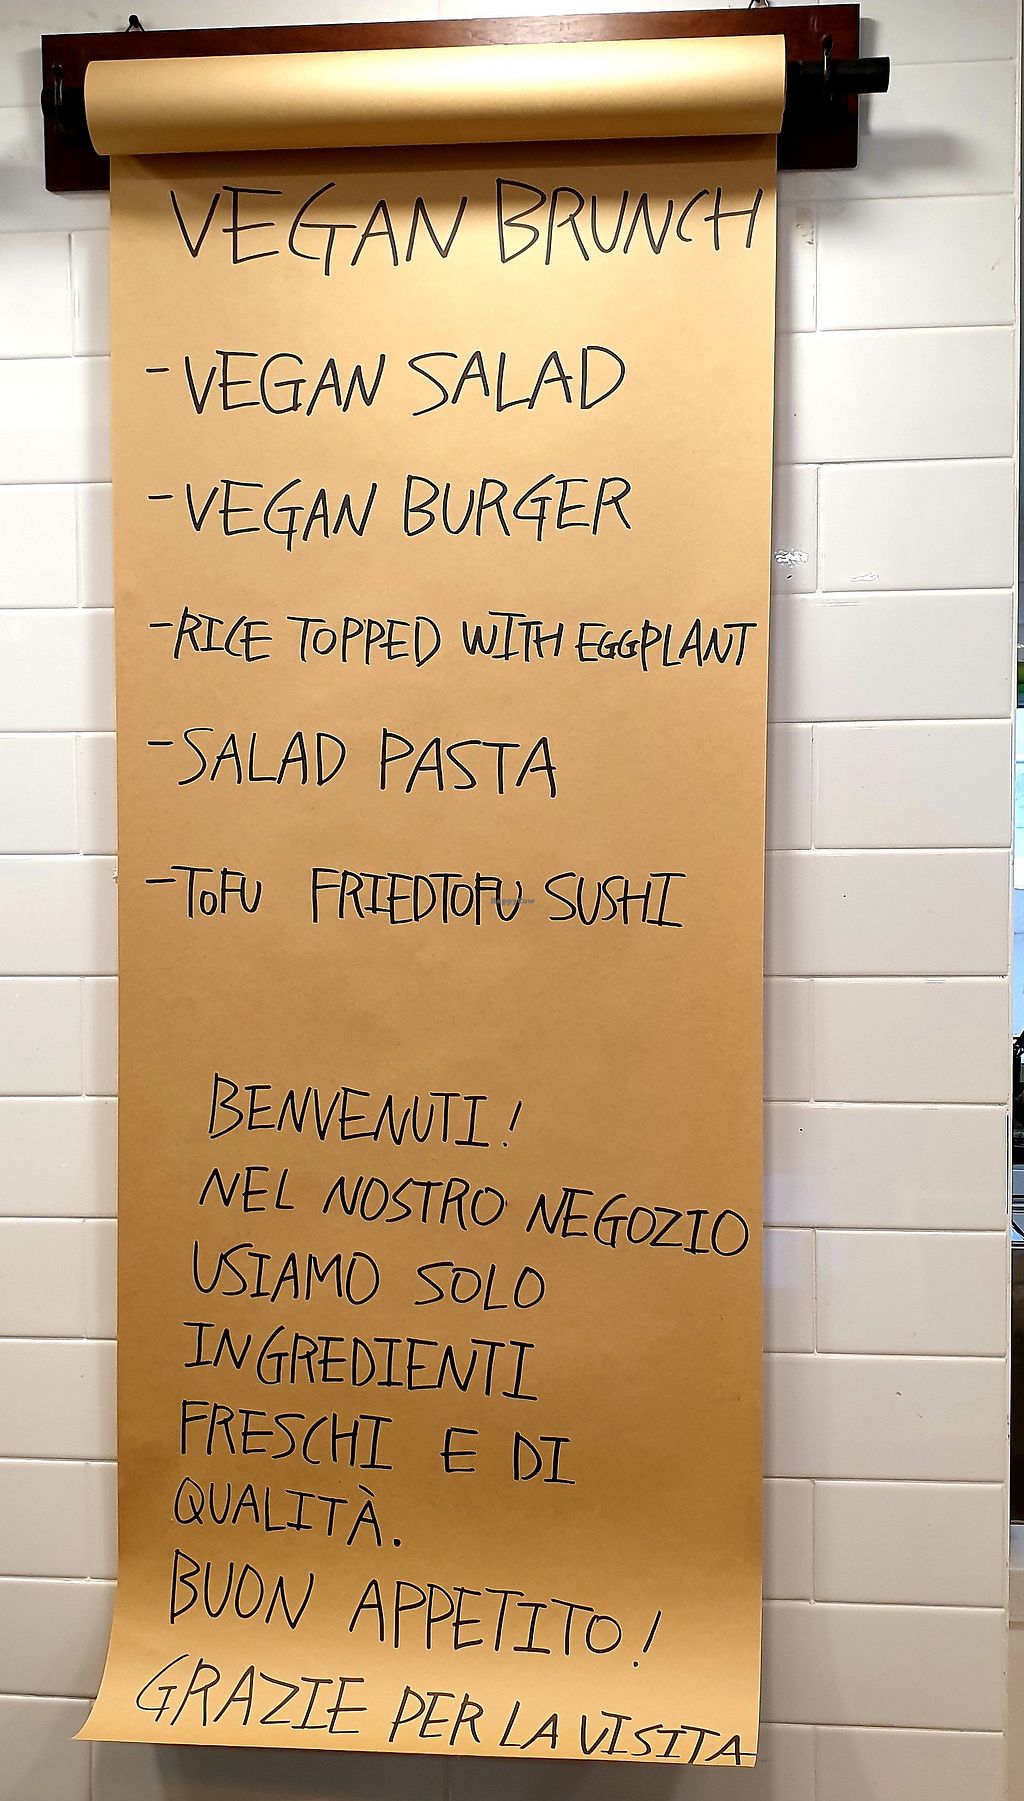 VEGAN BRUNCH
-VEGAN SALAD
-VEGAN BURGER
-RICE TOPPED WITH EGGPLANT
-SALAD PASTA
-TOFU FRIEDTOFU SUSHI
HappyCow
BENVENUTI!
NEL NOSTRO NEGOZIO
USIAMO SOLO
INGREDIENTI
FRESCHI E DI
QUALITÀ.
BUON APPETITO!
GRAZIE PER LA VISITA